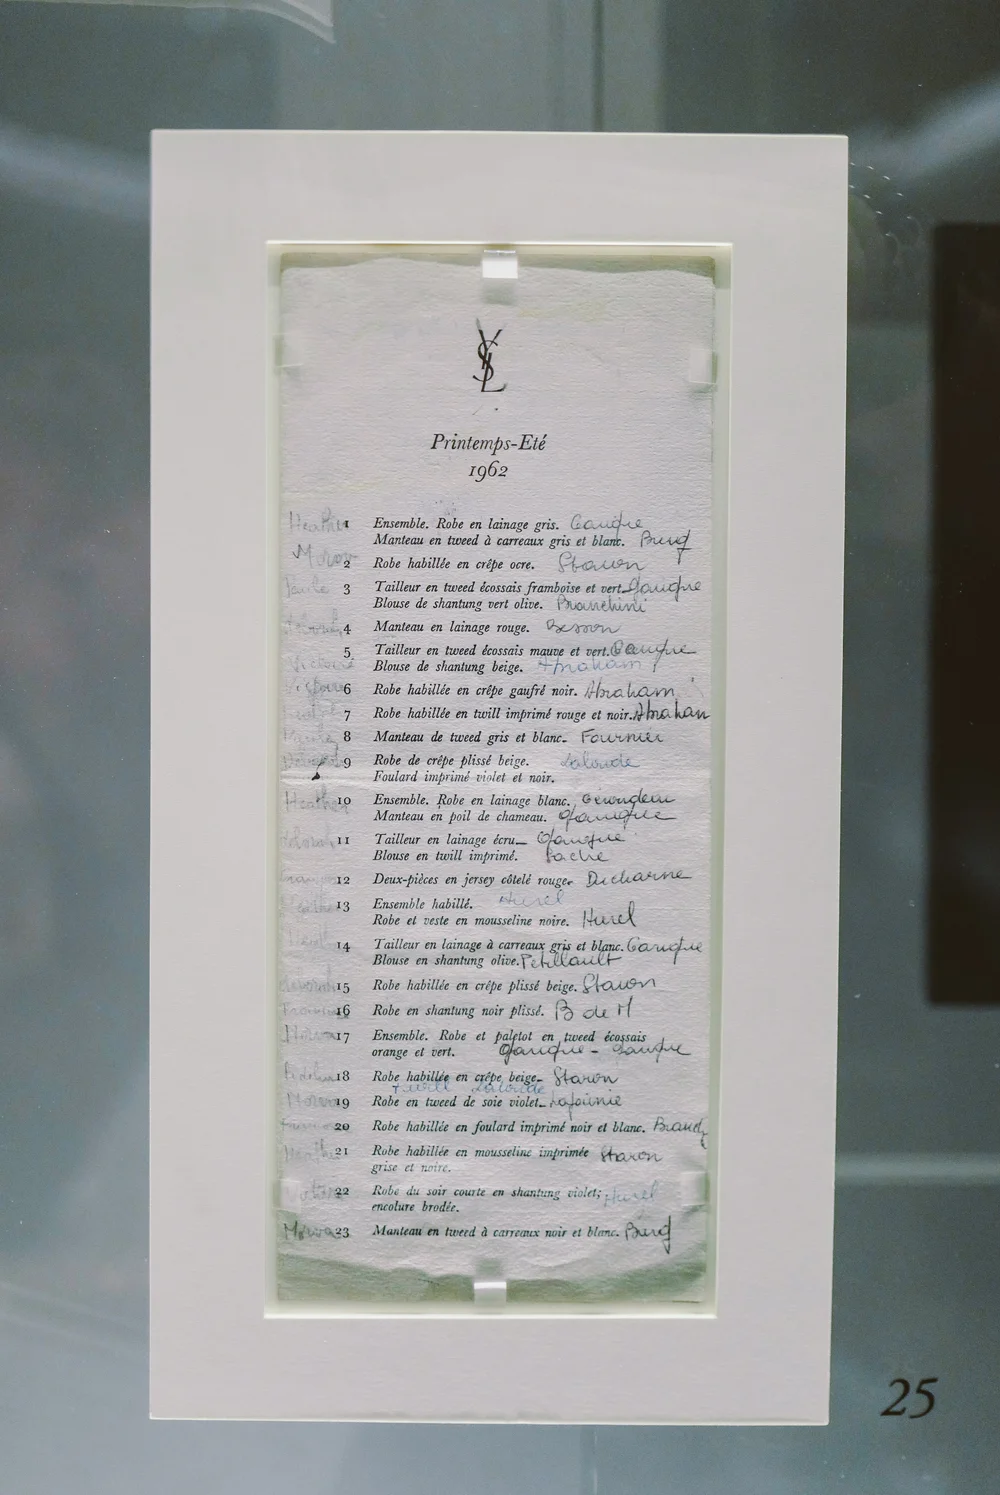 YSL
Printemps-Eté
1962
Heather 1 Ensemble. Robe en lainage gris. Gauique
Manteau en tweed à carreaux gris et blanc. Burg
2 Robe habillée en crêpe ocre. Staron
3 Tailleur en tweed écossais framboise et vert. Gauique
Blouse de shantung vert olive. Bianchini
4 Manteau en lainage rouge. Besson
5 Tailleur en tweed écossais mauve et vert. Gauique
Blouse de shantung beige. Abraham
Victoire 6 Robe habillée en crêpe gaufré noir. Abraham
7 Robe habillée en twill imprimé rouge et noir. Abraham
8 Manteau de tweed gris et blanc. Fournier
9 Robe de crêpe plissé beige. Lalonde
Foulard imprimé violet et noir.
Heather 10 Ensemble. Robe en lainage blanc.
Manteau en poil de chameau. Gauique
11 Tailleur en lainage écru. Gauique
Blouse en twill imprimé. Bache
12 Deux-pièces en jersey côtelé rouge. Ducharne
13 Ensemble habillé. Hurel
Robe et veste en mousseline noire. Hurel
14 Tailleur en lainage à carreaux gris et blanc. Gauique
Blouse en shantung olive. Petillault
15 Robe habillée en crêpe plissé beige. Staron
16 Robe en shantung noir plissé. B de M
17 Ensemble. Robe et paletot en tweed écossais
orange et vert. Gauique - Gauique
18 Robe habillée en crêpe beige. Staron
19 Robe en tweed de soie violet.
20 Robe habillée en foulard imprimé noir et blanc.
21 Robe habillée en mousseline imprimée Staron
grise et noire.
22 Robe du soir courte en shantung violet; Hurel
encolure brodée.
23 Manteau en tweed à carreaux noir et blanc. Burg
25